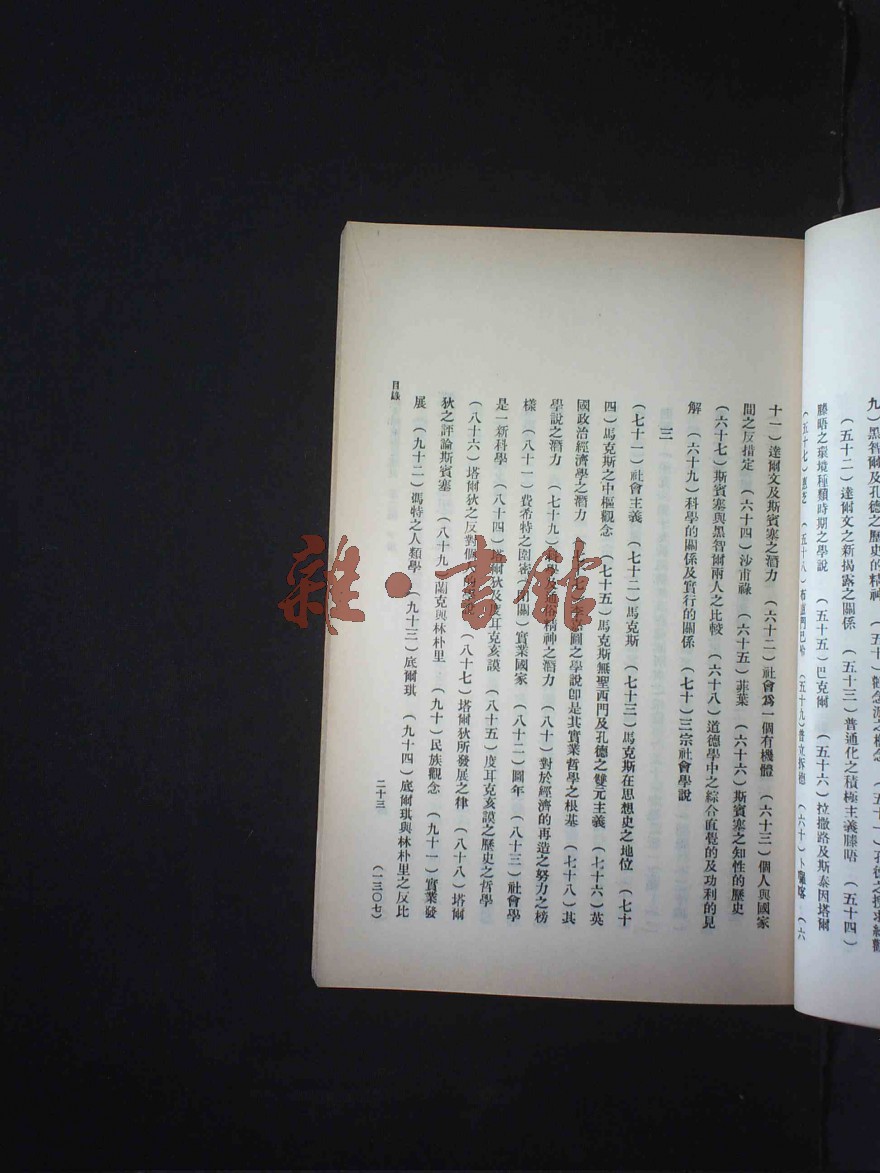 九）黑智爾及孔德之歷史的精神
（五十二）達爾文之新揭露之關係　（五十三）普通化之積極主義滕唔　（五十四）
滕唔之環境種類時期之學說　（五十五）巴克爾　（五十六）拉撒路及斯泰因塔爾
（五十七）　（五十八）布置門巴希　（五十九）普拉拆德　（六十）　（六
十一）達爾文及斯賓塞之潛力　（六十二）社會爲一個有機體　（六十三）個人與國家
間之反措定　（六十四）沙甫祿　（六十五）菲葉　（六十六）斯賓塞之知性的歷史
（六十七）斯賓塞與黑智爾兩人之比較　（六十八）道德學中之綜合直覺的及功利的見
解　（六十九）科學的關係及實行的關係　（七十）三宗社會學說
三
（七十一）社會主義　（七十二）馬克斯　（七十三）馬克斯在思想史之地位　（七十
四）馬克斯之中樞觀念　（七十五）馬克斯無聖西門及孔德之雙元主義　（七十六）英
國政治經濟學之潛力　（七十七）李克圖之學說卽是其實業哲學之根基　（七十八）其
學說之潛力　（七十九）科學及通俗精神之潛力　（八十）對於經濟的再造之努力之榜
樣　（八十一）費希特之固密（閉關）實業國家　（八十二）圖年　（八十三）社會學
是一新科學　（八十四）塔爾狄及度耳克亥謨　（八十五）度耳克亥謨之歷史之哲學
（八十六）塔爾狄之反對個人的學說　（八十七）塔爾狄所發展之律　（八十八）塔爾
狄之評論斯賓塞　（八十九）蘭克與林朴里　（九十）民族觀念　（九十一）實業發
展　（九十二）馮特之人類學　（九十三）底爾琪　（九十四）底爾琪與林朴里之反比
目錄
二十三
（一三〇七）
雜·書館